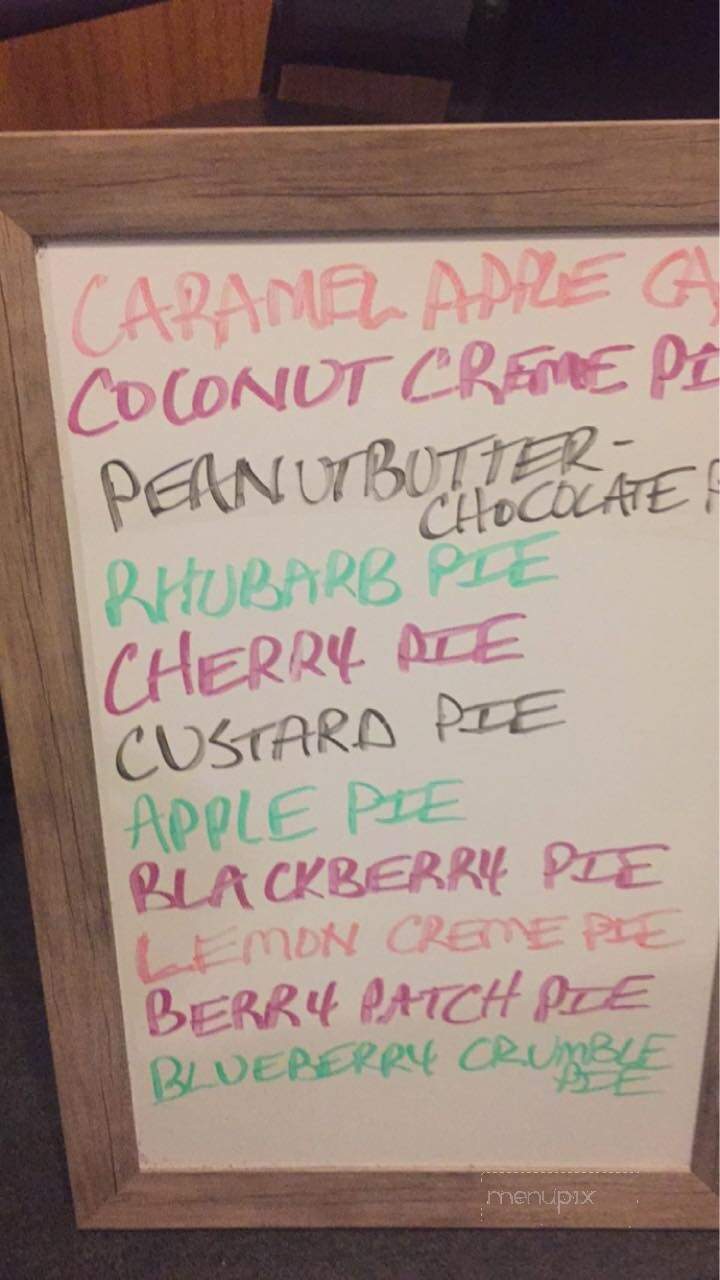 CARAMEL APPLE CA
COCONUT CREME PI
PEANUTBUTTER-
CHOCOLATE P
RHUBARB PIE
CHERRY PIE
CUSTARD PIE
APPLE PIE
BLACKBERRY PIE
LEMON CREME PIE
BERRY PATCH PIE
BLUEBERRY CRUMBLE
PIE
menupix